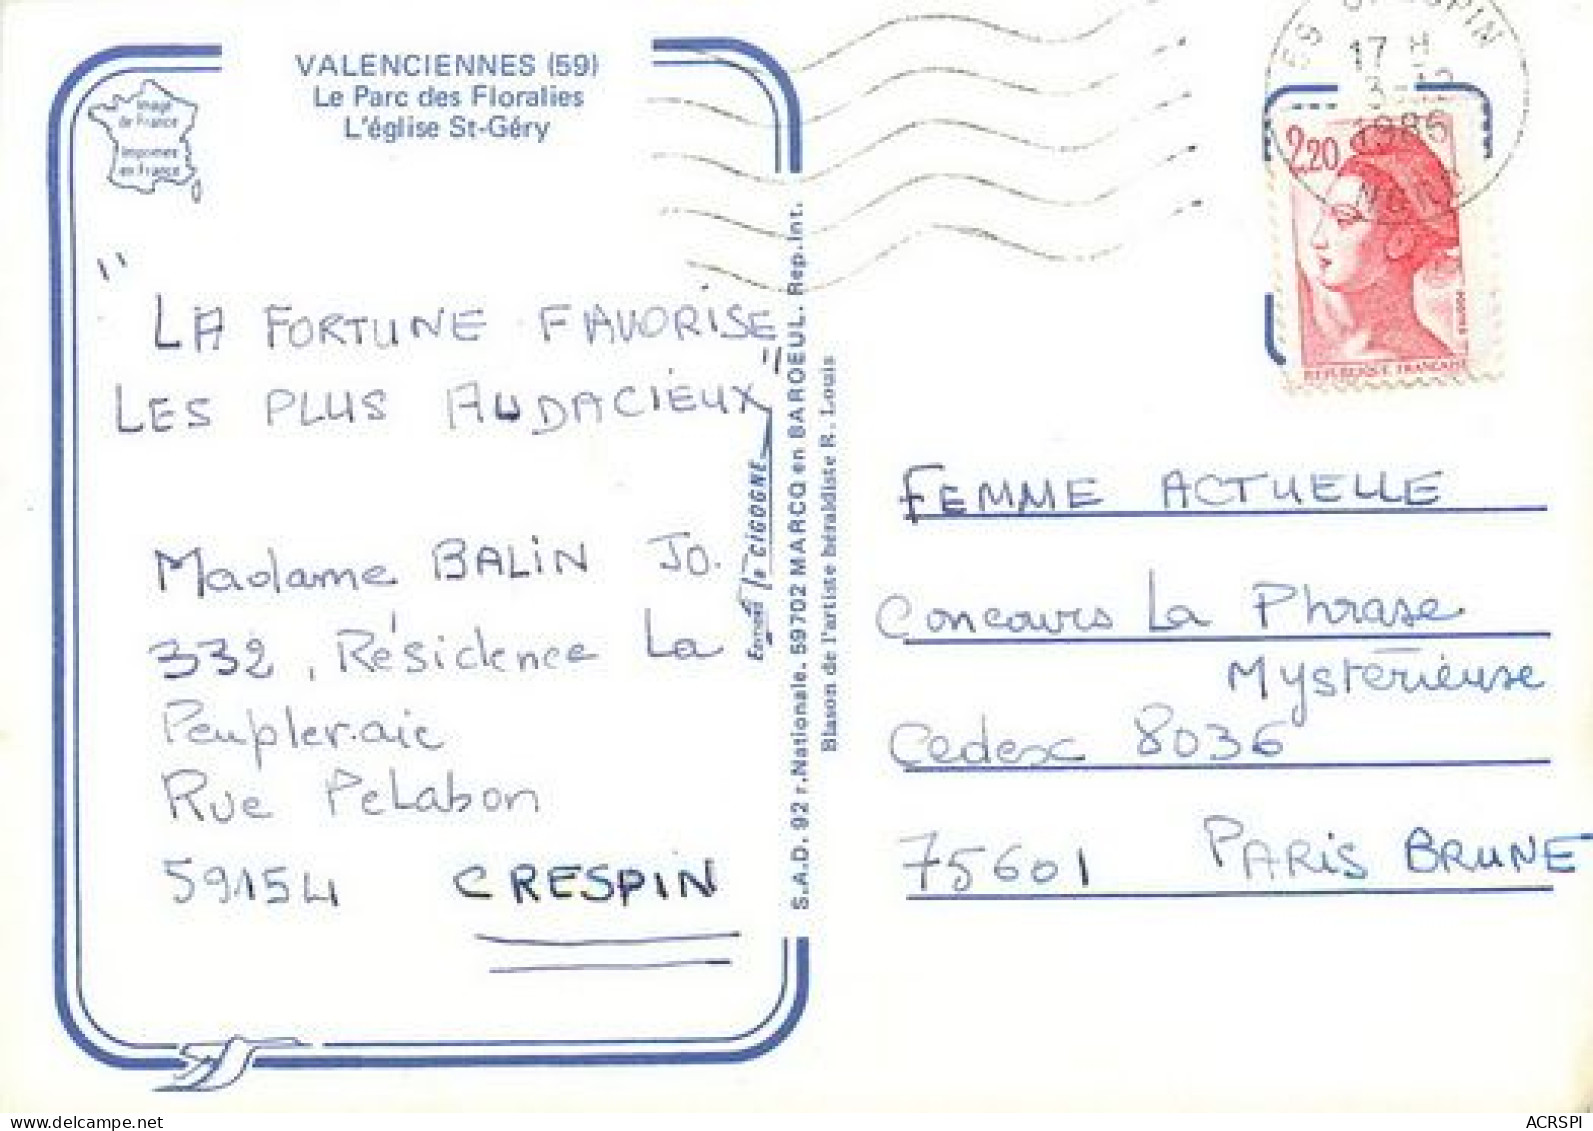 VALENCIENNES (59)
Le Parc des Floralies
L'église St-Géry
Image
de France
Imprimée
en France
" LA FORTUNE FAVORISE
LES PLUS AUDACIEUX "
Madame BALIN JO.
332, Résidence La
Peupleraie
Rue PeLabon
59154 CRESPIN
Editions la CIGOGNE
S.A.D. 92 r. Nationale. 59702 MARCQ en BAROEUL. Rep. Int.
Blason de l'artiste héraldiste R. Louis
59 CRESPIN
17 H
3-12
1986
NORD
2,20
REPUBLIQUE FRANÇAISE
FEMME ACTUELLE
Concours La Phrase
Mystérieuse
Cedex 8036
75601 PARIS BRUNE
delcampe.net
ACRSPI